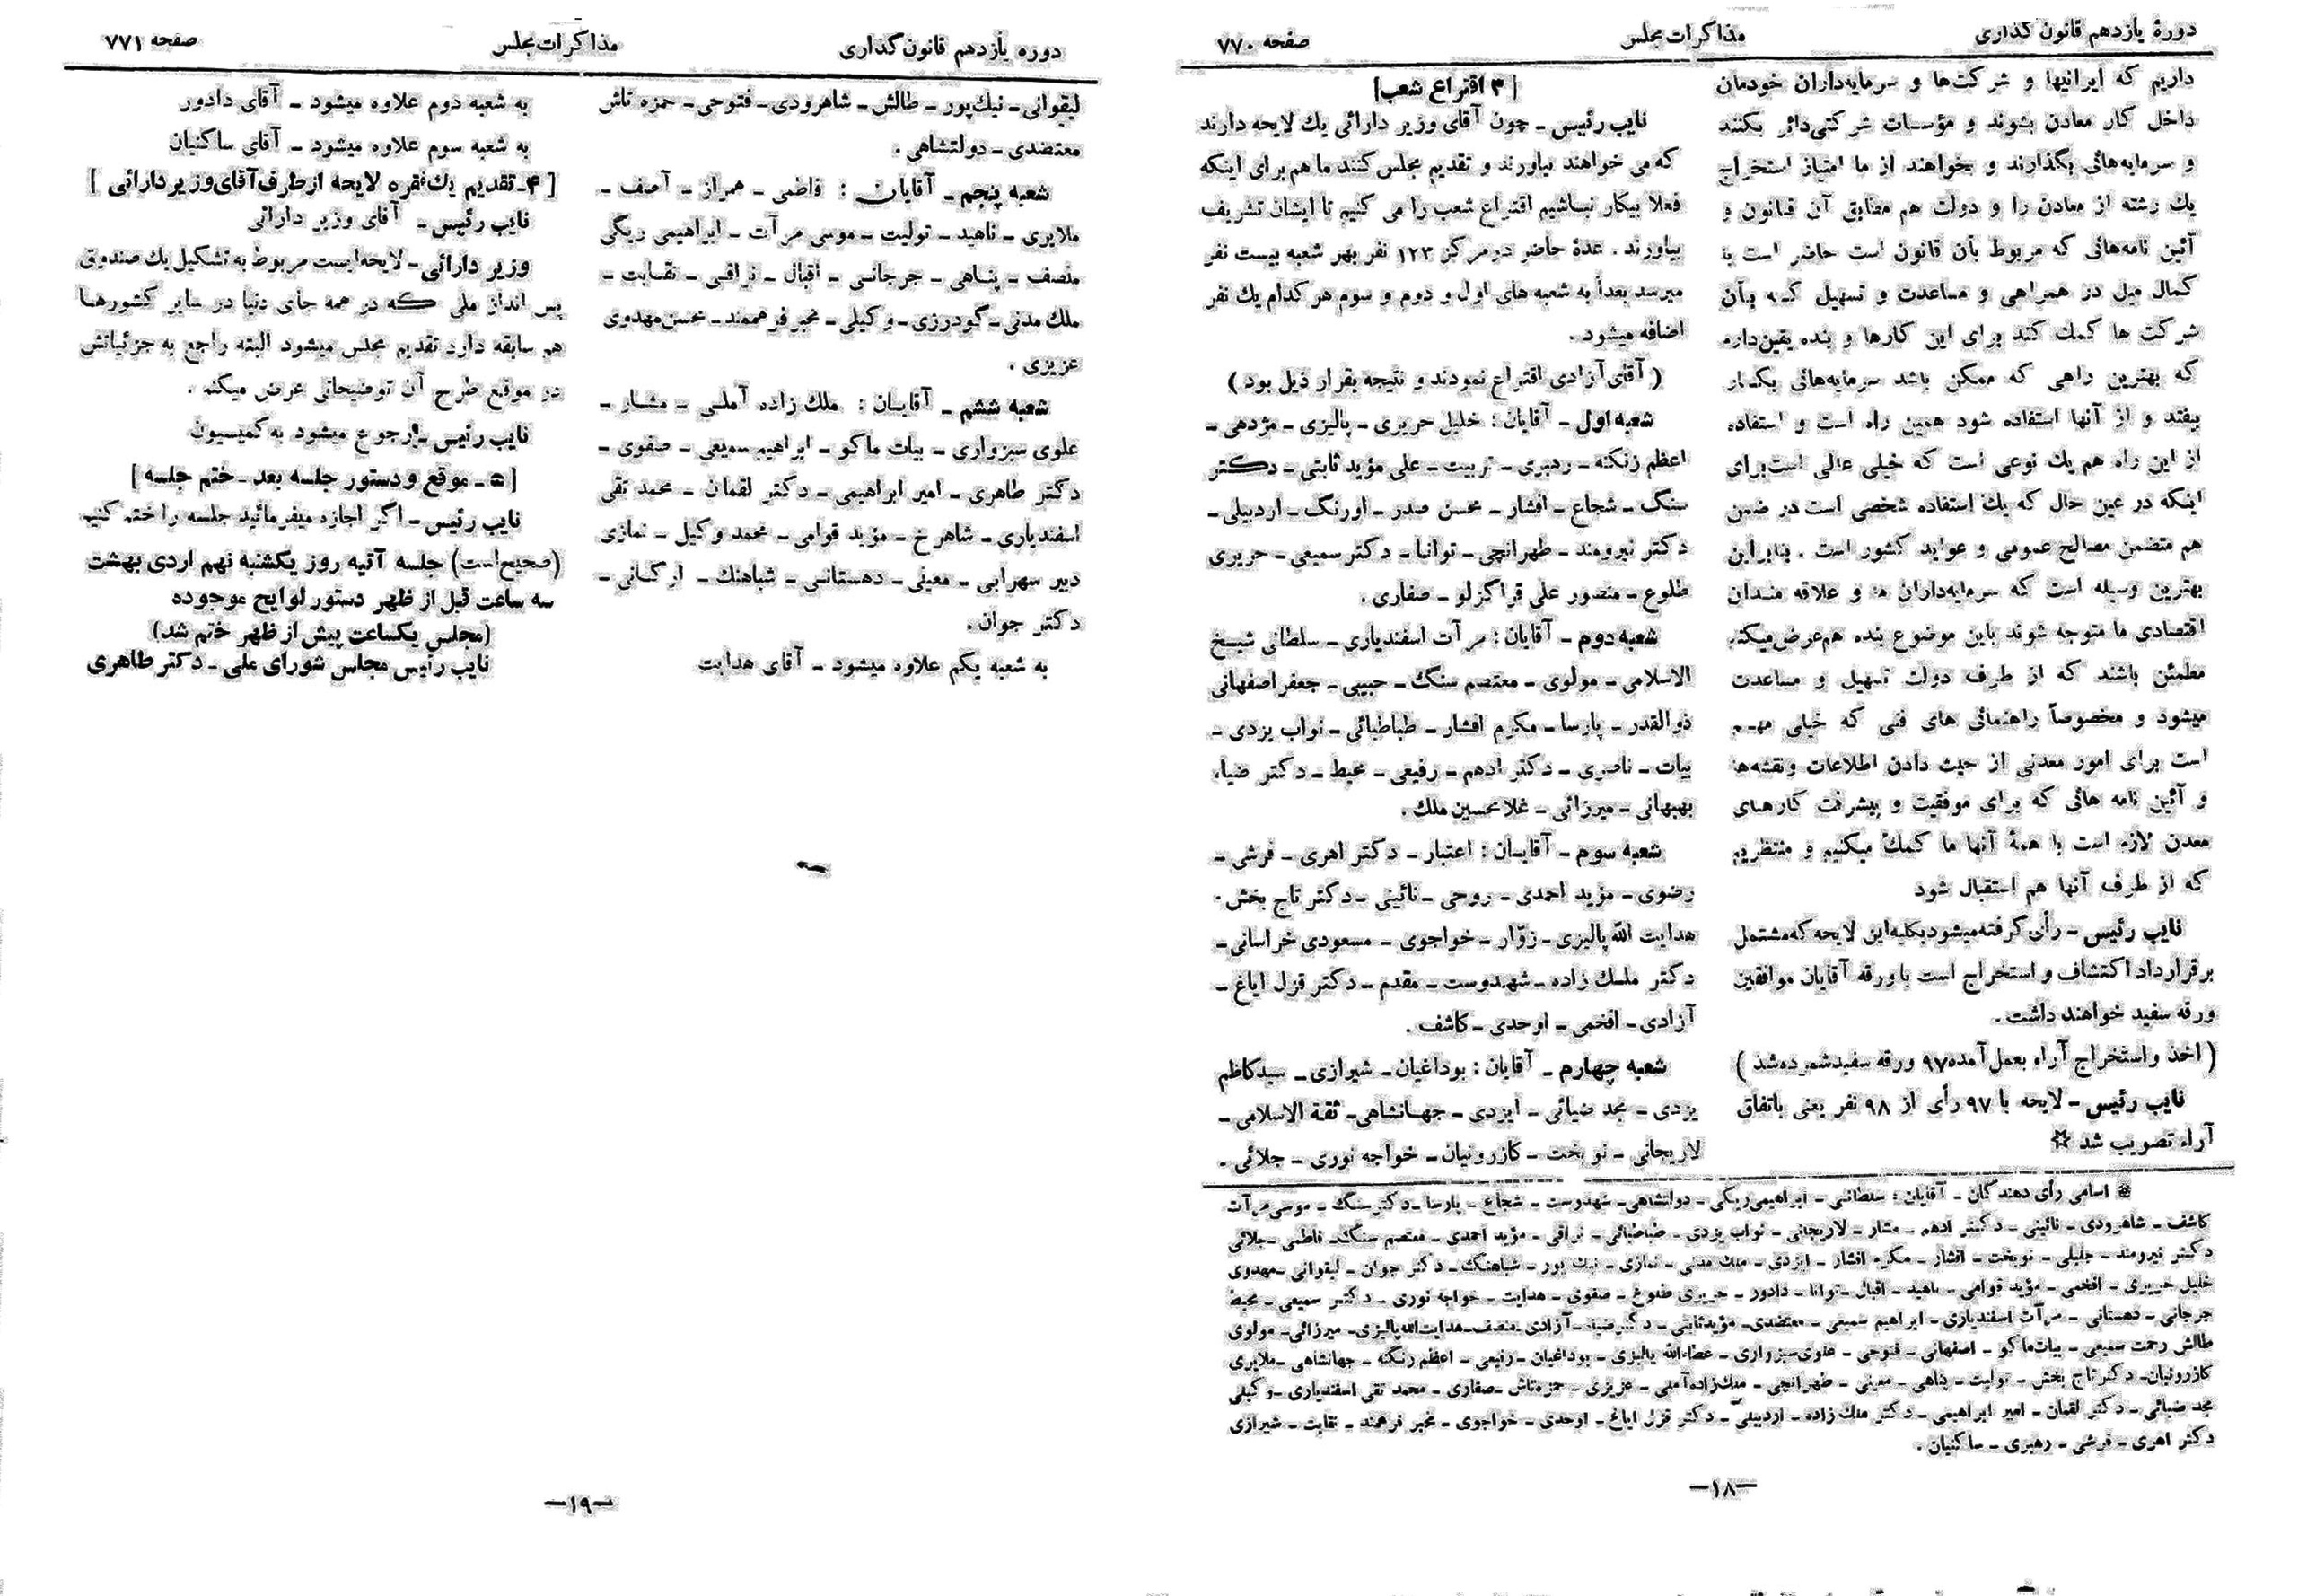 دورهٔ یازدهم قانون گذاری
مذاکرات مجلس
صفحه ۷۷۰
داریم که ایرانیها و شرکت‌ها و سرمایه‌داران خودمان
داخل کار معادن بشوند و مؤسسات شرکتی دائر بکنند
و سرمایه‌هائی بگذارند و بخواهند از ما امتیاز استخراج
یك رشته از معادن را و دولت هم مطابق آن قانون و
آئین نامه‌هائی که مربوط بآن قانون است حاضر است با
کمال میل در همراهی و مساعدت و تسهیل که بآن
شرکت ها کمك کند برای این کارها و بنده یقین‌دارم
که بهترین راهی که ممکن باشد سرمایه‌هائی بکار
بیفتد و از آنها استفاده شود همین راه است و استفاده
از این راه هم یك نوعی است که خیلی عالی است‌برای
اینکه در عین حال که یك استفاده شخصی است در ضمن
هم متضمن مصالح عمومی و عواید کشور است . بنابراین
بهترین وسیله است که سرمایه‌داران ما و علاقه مندان
اقتصادی ما متوجه شوند باین موضوع بنده هم‌عرض‌میکنم
مطمئن باشند که از طرف دولت تسهیل و مساعدت
میشود و مخصوصاً راهنمائی های فنی که خیلی مهم
است برای امور معدنی از حیث دادن اطلاعات ونقشه‌ها
و آئین نامه هائی که برای موفقیت و پیشرفت کارهای
معدن لازم است با همهٔ آنها ما کمك میکنیم و منتظریم
که از طرف آنها هم استقبال شود
نایب رئیس ـ رأی گرفته میشود بکلیه این لایحه که مشتمل
بر قرارداد اکتشاف و استخراج است با ورقه آقایان موافقین
ورقه سفید خواهند داشت .
( اخذ و استخراج آراء بعمل آمده ۹۷ ورقه سفید شمرده شد )
نایب رئیس ـ لایحه با ۹۷ رأی از ۹۸ نفر یعنی باتفاق
آراء تصویب شد ☆
[ ۳ اقتراع شعب]
نایب رئیس ـ چون آقای وزیر دارائی یك لایحه دارند
که می خواهند بیاورند و تقدیم مجلس کنند ما هم برای اینکه
فعلا بیکار نباشیم اقتراع شعب را می کنیم تا ایشان تشریف
بیاورند . عدهٔ حاضر در مرکز ۱۲۳ نفر بهر شعبه بیست نفر
میرسد بعداً به شعبه های اول و دوم و سوم هر کدام یك نفر
اضافه میشود .
( آقای آزادی اقتراع نمودند و نتیجه بقرار ذیل بود )
شعبه اول ـ آقایان : خلیل حریری ـ پالیزی ـ مژدهی ـ
اعظم زنگنه ـ رهبری ـ تربیت ـ علی مؤید ثابتی ـ دکتر
سنگ ـ شجاع ـ افشار ـ محسن صدر ـ اورنگ ـ اردبیلی ـ
دکتر نیرومند ـ طهرانچی ـ توانا ـ دکتر سمیعی ـ حریری
طلوع ـ منصور علی قراگزلو ـ صفاری .
شعبه دوم ـ آقایان : مرآت اسفندیاری ـ سلطانی شیخ
الاسلامی ـ مولوی ـ معتصم سنگ ـ حبیبی ـ جعفر اصفهانی
ذوالقدر ـ پارسا ـ مکرم افشار ـ طباطبائی ـ نواب یزدی ـ
بیات ـ ناصری ـ دکتر ادهم ـ رفیعی ـ محیط ـ دکتر ضیاء
بهبهانی ـ میرزائی ـ غلامحسین ملك .
شعبه سوم ـ آقایان : اعتبار ـ دکتر اهری ـ فرشی ـ
رضوی ـ مؤید احمدی ـ روحی ـ نائینی ـ دکتر تاج بخش .
هدایت الله پالیزی ـ زوّار ـ خواجوی ـ مسعودی خراسانی ـ
دکتر ملك زاده ـ شهدوست ـ مقدم ـ دکتر قزل ایاغ ـ
آزادی ـ افخمی ـ اوحدی ـ کاشف .
شعبه چهارم ـ آقایان : بوداغیان ـ شیرازی ـ سید کاظم
یزدی ـ مجد ضیائی ـ ایزدی ـ جهانشاهی ـ ثقة الاسلامی ـ
لاریجانی ـ نوبخت ـ کازرونیان ـ خواجه نوری ـ جلائی .
☆ اسامی رأی دهندگان ـ آقایان : سلطانی ـ ابراهیمی‌ریگی ـ دولتشاهی ـ شهدوست ـ شجاع ـ پارسا ـ دکتر سنگ ـ موسی مرآت
کاشف ـ شاهرودی ـ نائینی ـ دکتر ادهم ـ مشار ـ لاریجانی ـ نواب یزدی ـ طباطبائی ـ نراقی ـ مؤید احمدی ـ معتصم سنگ ـ فاطمی ـ جلائی
دکتر نیرومند ـ جلیلی ـ نوبخت ـ افشار ـ مکرم افشار ـ ایزدی ـ ملك مدنی ـ نمازی ـ نیك پور ـ شباهنگ ـ دکتر جوان ـ لیقوانی ـ مهدوی
خلیل حریری ـ افخمی ـ مؤید قوامی ـ ناهید ـ اقبال ـ توانا ـ دادور ـ حریری طلوع ـ صفوی ـ هدایت ـ خواجه نوری ـ دکتر سمیعی ـ محیط
جرجانی ـ دهستانی ـ مرآت اسفندیاری ـ ابراهیم سمیعی ـ معتضدی ـ مؤید ثابتی ـ دکتر ضیاء ـ آزادی ـ منصف ـ هدایت الله پالیزی ـ میرزائی ـ مولوی
طالش رحمت سمیعی ـ بیات ماکو ـ اصفهانی ـ فتوحی ـ علوی سبزواری ـ عطاءالله پالیزی ـ بوداغیان ـ رفیعی ـ اعظم زنگنه ـ جهانشاهی ـ ملایری
کازرونیان ـ دکتر تاج بخش ـ تولیت ـ پناهی ـ معینی ـ طهرانچی ـ ملك زاده آملی ـ عزیزی ـ حمزه تاش ـ صفاری ـ محمد تقی اسفندیاری ـ وکیلی
مجد ضیائی ـ دکتر لقمان ـ امیر ابراهیمی ـ دکتر ملك زاده ـ اردبیلی ـ دکتر قزل ایاغ ـ اوحدی ـ خواجوی ـ مخبر فرهمند ـ نقابت ـ شیرازی
دکتر اهری ـ فرشی ـ رهبری ـ ساکنیان .
—۱۸—
دوره یازدهم قانون گذاری
مذاکرات مجلس
صفحه ۷۷۱
لیقوانی ـ نیك پور ـ طالش ـ شاهرودی ـ فتوحی ـ حمزه تاش
معتضدی ـ دولتشاهی .
شعبه پنجم ـ آقایان : فاطمی ـ همراز ـ آصف ـ
ملایری ـ ناهید ـ تولیت ـ موسی مرآت ـ ابراهیمی ریگی
منصف ـ پناهی ـ جرجانی ـ اقبال ـ نراقی ـ نقابت ـ
ملك مدنی ـ گودرزی ـ وکیلی ـ مخبر فرهمند ـ محسن مهدوی
عزیزی .
شعبه ششم ـ آقایان : ملك زاده آملی ـ مشار ـ
علوی سبزواری ـ بیات ماکو ـ ابراهیم سمیعی ـ صفوی ـ
دکتر طاهری ـ امیر ابراهیمی ـ دکتر لقمان ـ محمد تقی
اسفندیاری ـ شاهرخ ـ مؤید قوامی ـ محمد وکیل ـ نمازی
دبیر سهرابی ـ معینی ـ دهستانی ـ شباهنگ ـ ارگانی ـ
دکتر جوان .
به شعبه یکم علاوه میشود ـ آقای هدایت
به شعبه دوم علاوه میشود ـ آقای دادور
به شعبه سوم علاوه میشود ـ آقای ساکنیان
[ ۴ـ تقدیم یك فقره لایحه از طرف آقای وزیر دارائی ]
نایب رئیس ـ آقای وزیر دارائی
وزیر دارائی ـ لایحه‌ایست مربوط به تشکیل یك صندوق
پس انداز ملی که در همه جای دنیا در سایر کشورها
هم سابقه دارد تقدیم مجلس میشود البته راجع به جزئیاتش
در موقع طرح آن توضیحاتی عرض میکنم .
نایب رئیس ـ ارجوع میشود به کمیسیون
[ ۵ ـ موقع و دستور جلسه بعد ـ ختم جلسه ]
نایب رئیس ـ اگر اجازه میفرمائید جلسه را ختم کنیم
(صحیح است) جلسه آتیه روز یکشنبه نهم اردی بهشت
سه ساعت قبل از ظهر دستور لوایح موجوده
(مجلس یکساعت پیش از ظهر ختم شد)
نایب رئیس مجلس شورای ملی ـ دکتر طاهری
—۱۹—